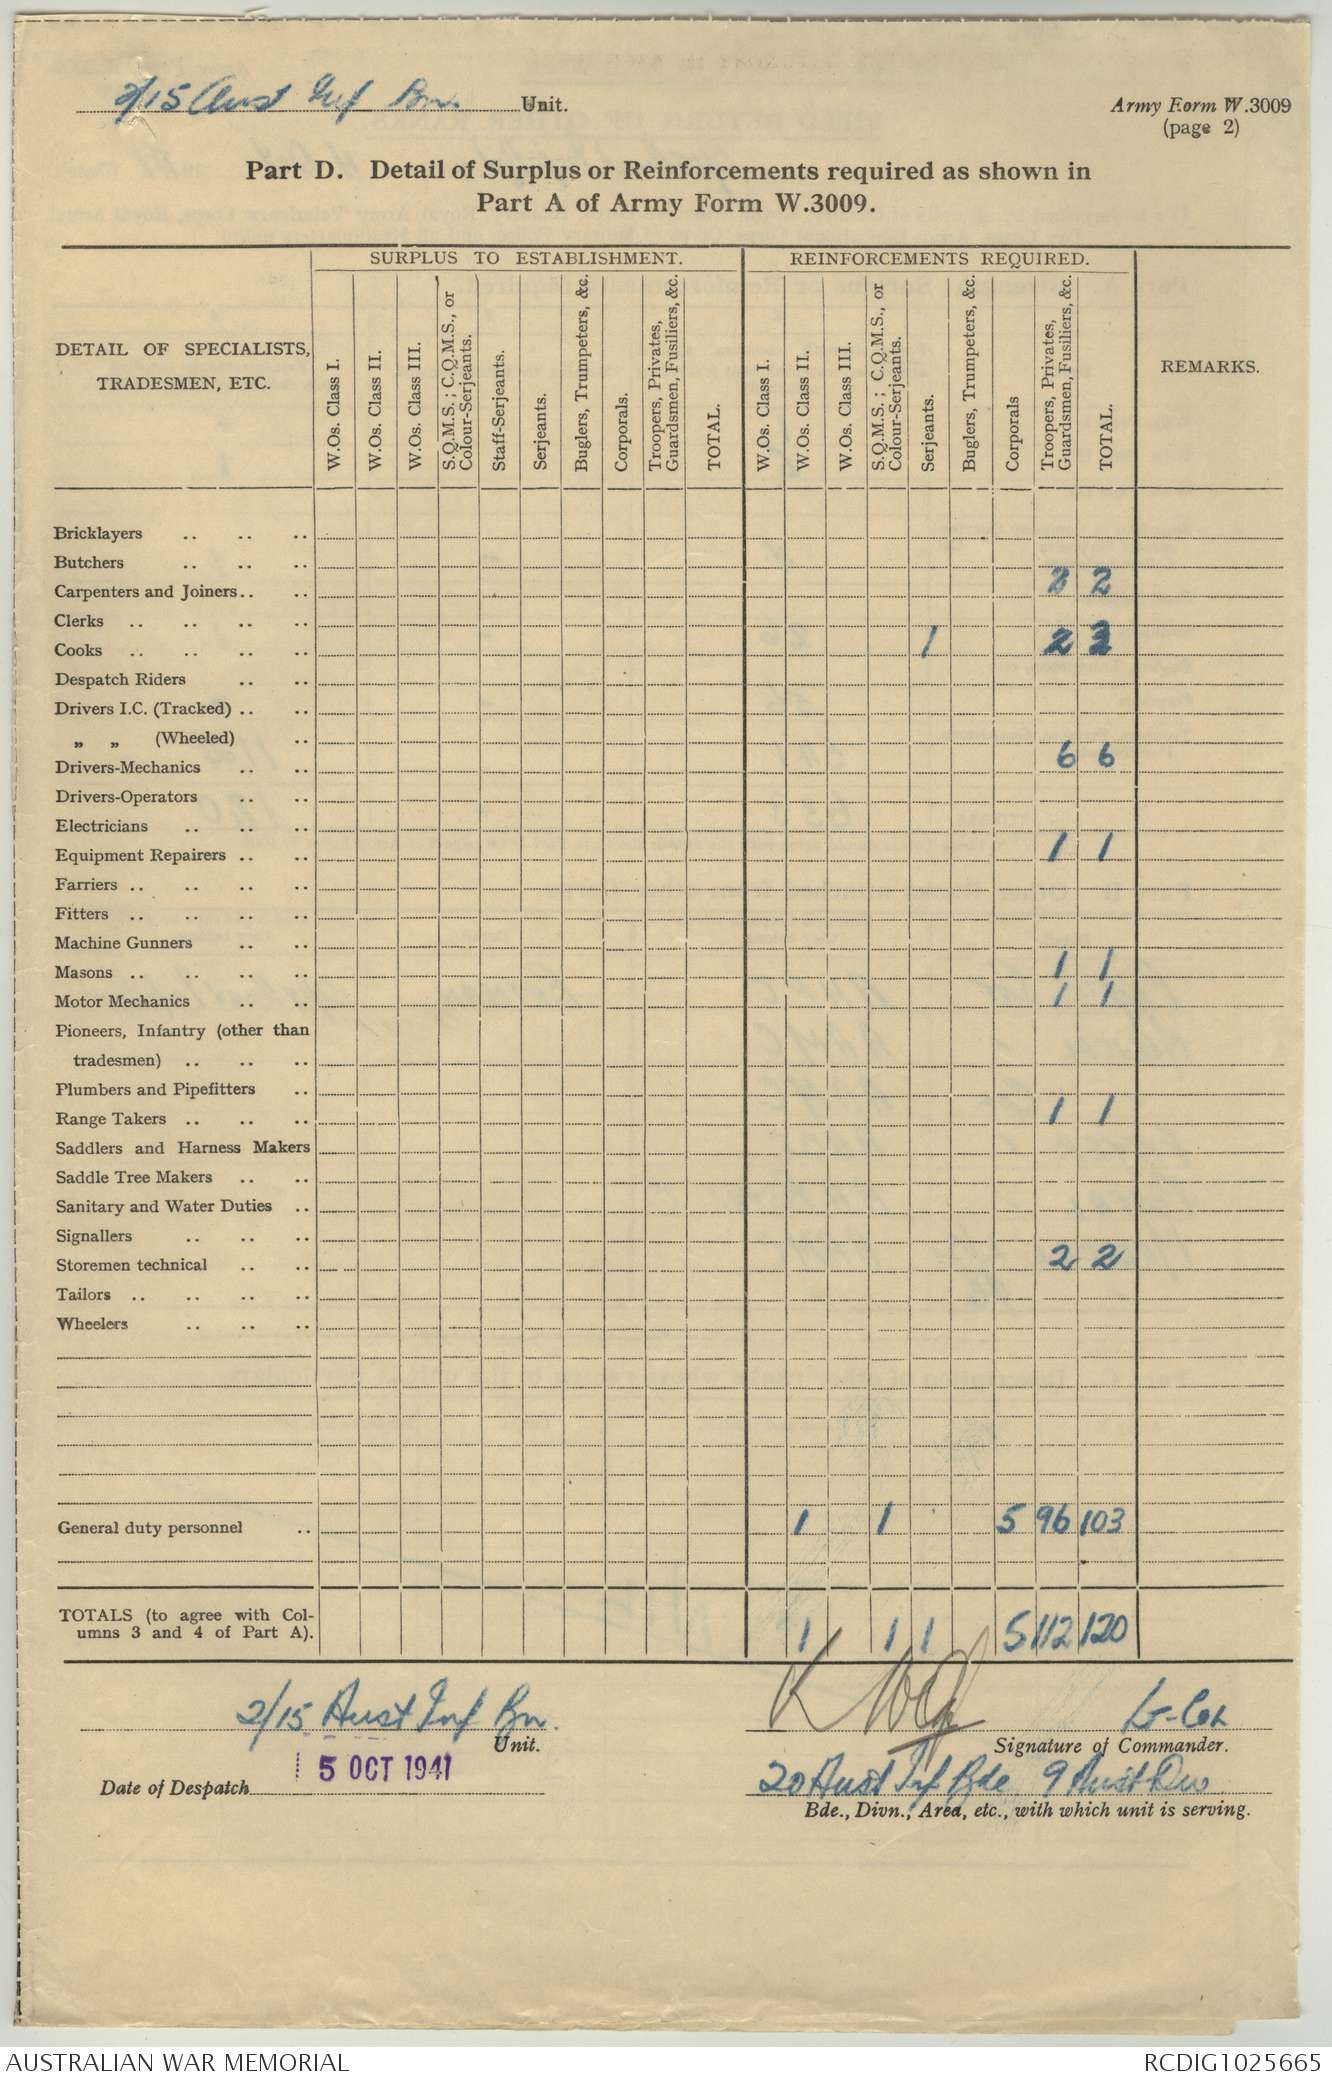 2/15 Aust Inf Bn. Unit.
Army Form W.3009
(page 2)
Part D. Detail of Surplus or Reinforcements required as shown in
Part A of Army Form W.3009.
DETAIL OF SPECIALISTS, TRADESMEN, ETC.
SURPLUS TO ESTABLISHMENT.
W.Os. Class I.
W.Os. Class II.
W.Os. Class III.
S.Q.M.S.; C.Q.M.S., or Colour-Serjeants.
Staff-Serjeants.
Serjeants.
Buglers, Trumpeters, &c.
Corporals.
Troopers, Privates, Guardsmen, Fusiliers, &c.
TOTAL.
REINFORCEMENTS REQUIRED.
W.Os. Class I.
W.Os. Class II.
W.Os. Class III.
S.Q.M.S.; C.Q.M.S., or Colour-Serjeants.
Serjeants.
Buglers, Trumpeters, &c.
Corporals
Troopers, Privates, Guardsmen, Fusiliers, &c.
TOTAL.
REMARKS.
Bricklayers .. .. ..
Butchers .. .. ..
Carpenters and Joiners.. .. 2 2
Clerks .. .. .. ..
Cooks .. .. .. .. 1 2 3
Despatch Riders .. ..
Drivers I.C. (Tracked) .. ..
„ „ (Wheeled) ..
Drivers-Mechanics .. .. 6 6
Drivers-Operators .. ..
Electricians .. .. ..
Equipment Repairers .. .. 1 1
Farriers .. .. .. ..
Fitters .. .. .. ..
Machine Gunners .. ..
Masons .. .. .. .. 1 1
Motor Mechanics .. .. 1 1
Pioneers, Infantry (other than
tradesmen) .. .. ..
Plumbers and Pipefitters ..
Range Takers .. .. .. 1 1
Saddlers and Harness Makers
Saddle Tree Makers .. ..
Sanitary and Water Duties ..
Signallers .. .. ..
Storemen technical .. .. 2 2
Tailors .. .. .. ..
Wheelers .. .. ..
General duty personnel .. 1 1 5 96 103
TOTALS (to agree with Col-
umns 3 and 4 of Part A). 1 1 1 5 112 120
2/15 Aust Inf Bn.
Unit.
Lt-Col
Signature of Commander.
Date of Despatch 5 OCT 1941
20 Aust Inf Bde 9 Aust Div
Bde., Divn., Area, etc., with which unit is serving.
AUSTRALIAN WAR MEMORIAL
RCDIG1025665